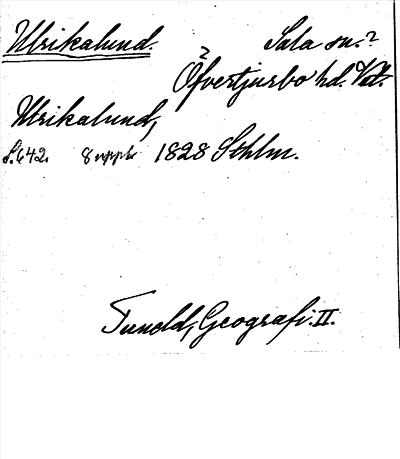 Ulrikalund. Sala sn.?
Öfvertjurbo hd. Vstm.
Ulrikalund,
S. 642. 8 uppl. 1828 Sthlm.
Tuneld, Geografi. II.